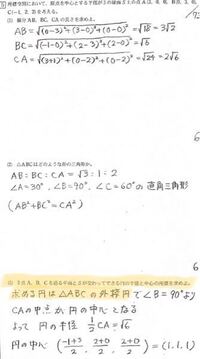 5 座標空間において、原点を中心とする半径3の球面S上の点A(3, 0, 0), B(0, 3, 0),
C(-1, 2, 2)を考える。
(1) 線分AB, BC, CAの長さを求めよ。
AB=√(0-3)²+(3-0)²+(0-0)² =√18=3√2
BC=√(-1-0)²+(2-3)²+(2-0)² =√6
CA=√(3+1)²+(0-2)²+(0-2)² =√24=2√6
6
(2) △ABCはどのような形の三角形か。
AB:BC:CA=√3:1:2
∠A=30°, ∠B=90°, ∠C=60°の直角三角形
(AB²+BC²=CA²)
6
(3) 3点A, B, Cを通る平面とSが交わってできる円の半径と中心の座標を求めよ。
求める円は△ABCの外接円で∠B=90°より
CAの中点が円の中心となる
よって 円の半径 1/2 CA=√6
円の中心 (-1+3/2, 2+0/2, 2+0/2)=(1, 1, 1)